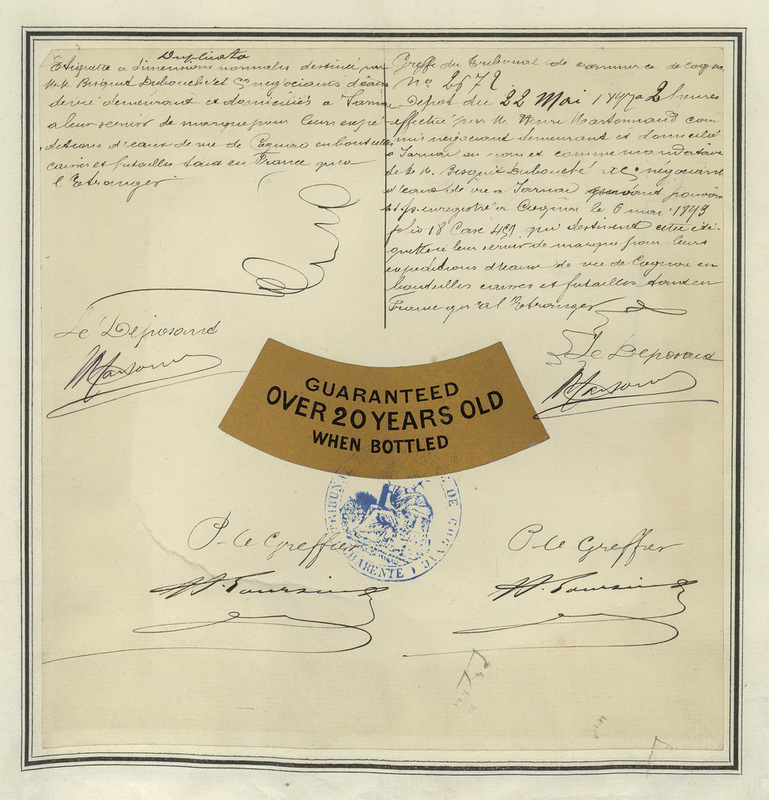 Duplicata
Etiquette a dimensions normales destinée par
M.M. Bisquit Dubouché et Co négociants d'eau
de vie demeurant et domiciliés a Jarnac
a leur servir de marque pour leurs expé
ditions d'eaux de vie de Cognac en bouteilles
caisses et futailles tant en France qu'a
l'Etranger
Le Déposant
Greffe du Tribunal de commerce de Cognac
No 2672
Dépot du 22 Mai a 2 heures
effectué par M. com
mis négociant demeurant et domicilié
a Jarnac au nom et comme mandataire
de M.M. Bisquit Dubouché et Co négociants
d'eaux de vie a Jarnac suivant pouvoir
enregistré a Cognac le 6 mai
folio 18 Case qui destinent cette éti
quette a leur servir de marque pour leurs
expéditions d'eaux de vie de Cognac en
bouteilles caisses et futailles tant en
France qu'a l'Etranger
Le Déposant
GUARANTEED
OVER 20 YEARS OLD
WHEN BOTTLED
TRIBUNAL DE COGNAC
CHARENTE
P. le Greffier
P. le Greffier